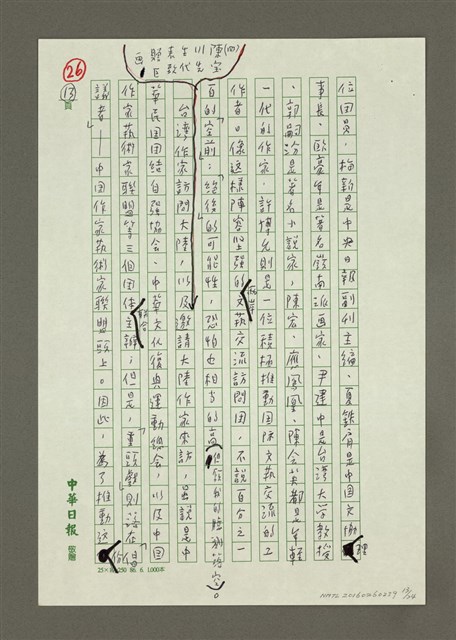 ㉖
⑬
(四)陳宏先生以現代素描畫
位團員，梅新是中央日報副刊主編、夏鐵肩是中國文協理
事長、歐豪年是著名嶺南派画家、尹建中是台灣大學教授
、郭嗣汾是著名小說家，陳宏、應鳳凰、陳
一代的作家，許博允則是一位積極推動國際文藝交流的工
作者。像這樣陣容堅強的文藝交流訪問團，不說百分之一
百的「空前」；「絕後」的可能性，恐怕也相當的高
台灣作家訪問大陸，以及邀請大陸作家來訪，雖說是中
華民國團結自強協會、中華文化復興運動總會，以及中國
作家藝術家聯盟等三個團体聯合主辦；但是，重頭戲則落在「倡
議者」——中國作家藝術家聯盟頭上。因此，為了推動這份
中華日報
25×10=250 86.6.1,000本
NMTL20160260229
13/24